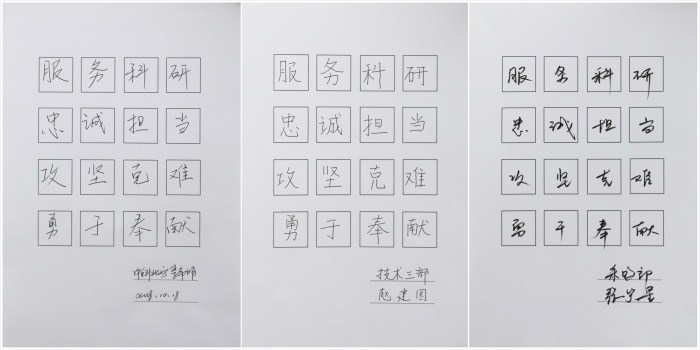 服务科研
忠诚担当
攻坚克难
勇于奉献
2018.10.18
服务科研
忠诚担当
攻坚克难
勇于奉献
技术三部
赵建国
服务科研
忠诚担当
攻坚克难
勇于奉献